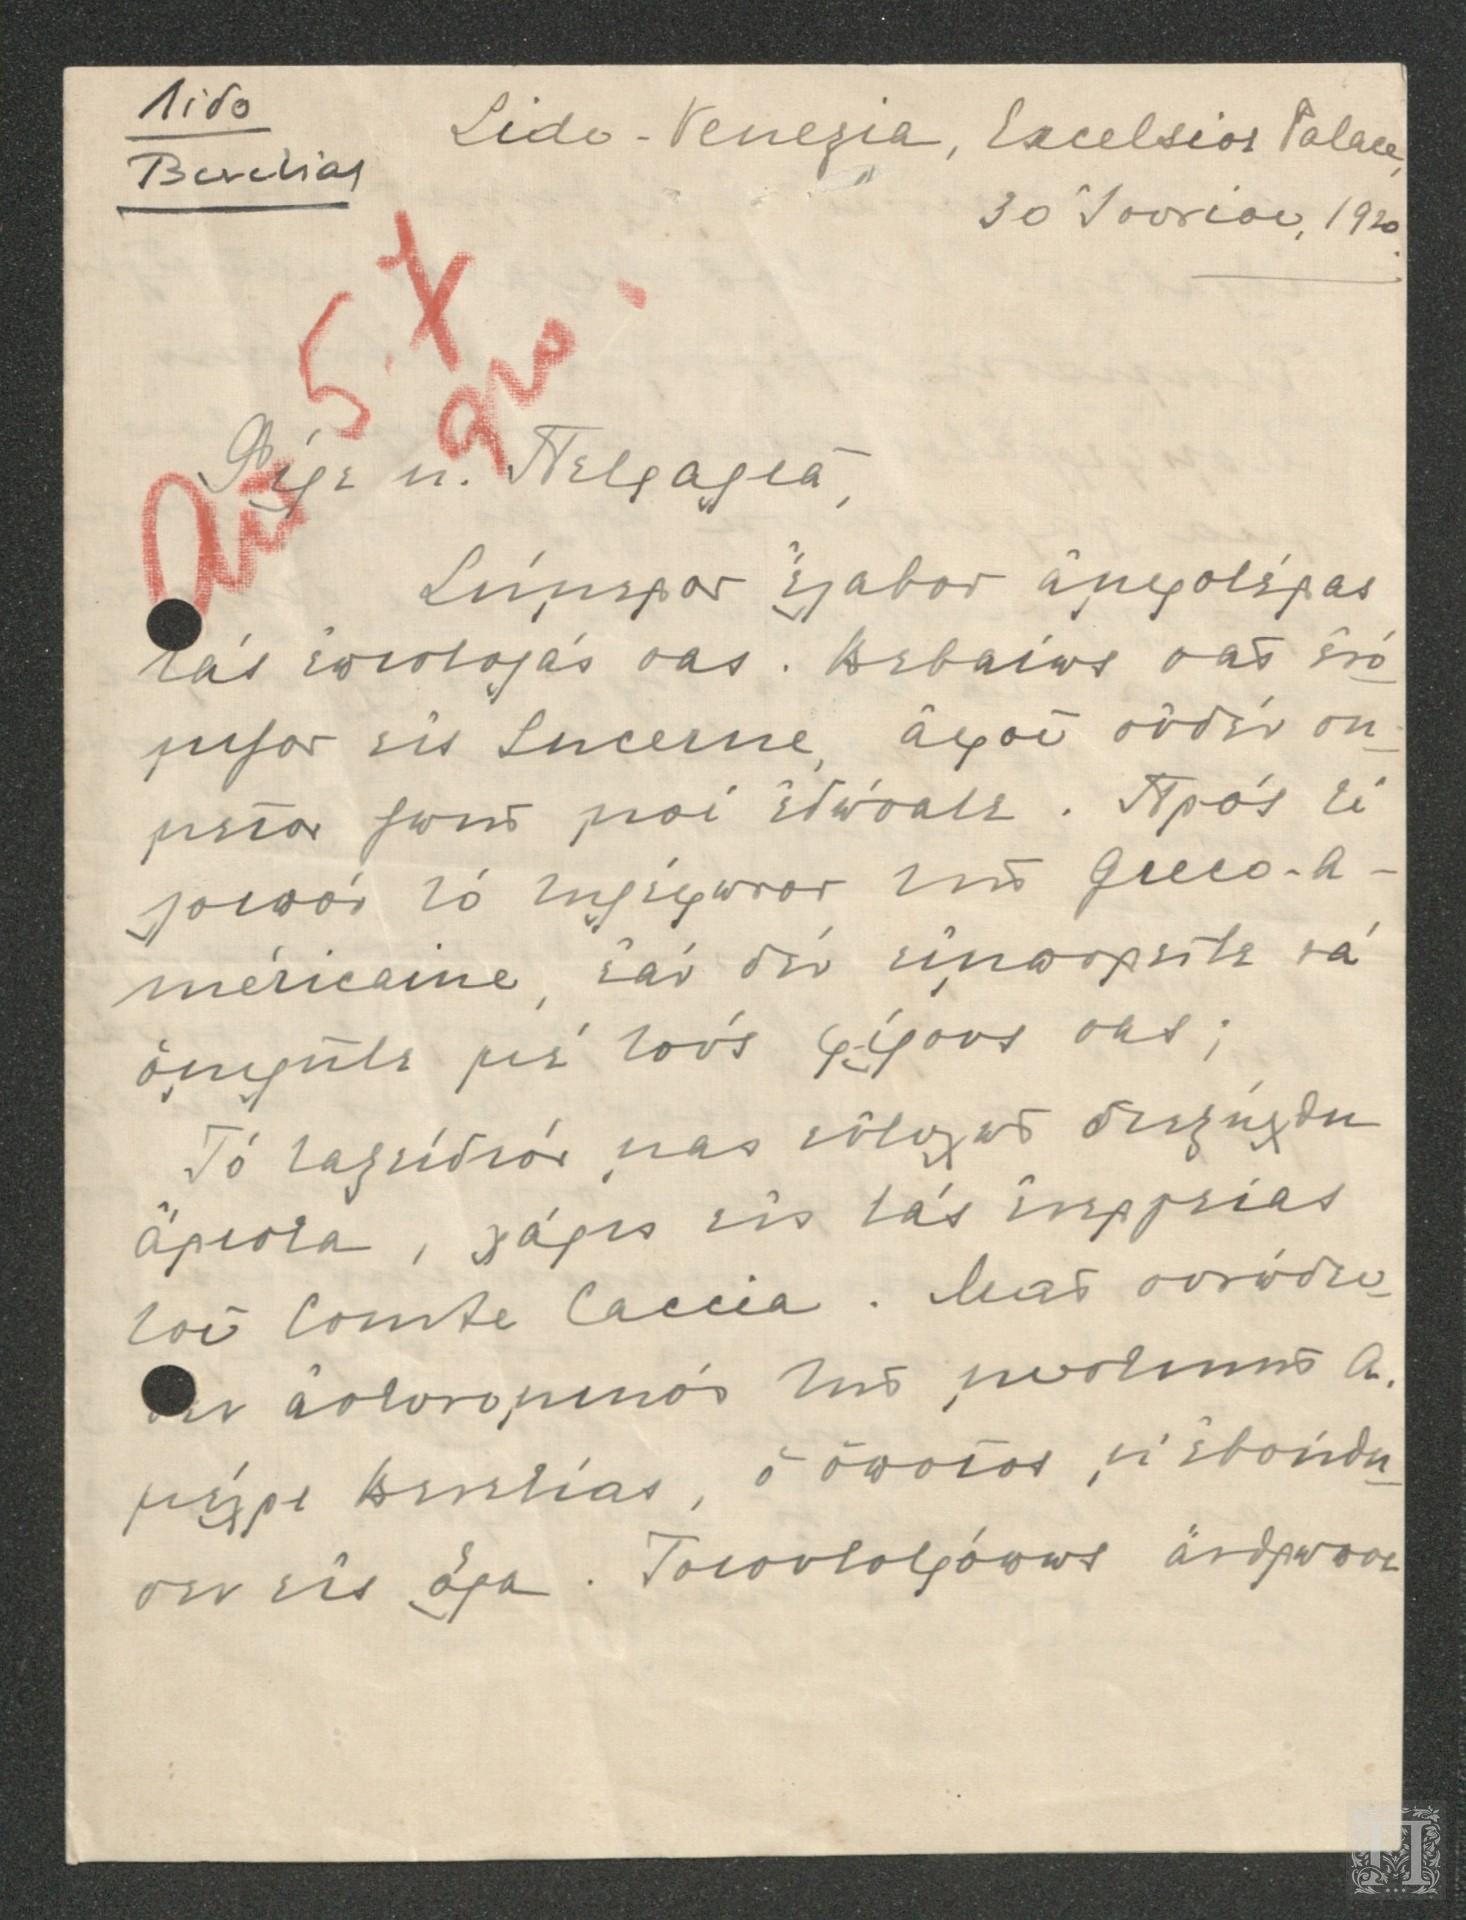 Λίδο
Βενετίας
Lido - Venezia, Excelsior Palace,
30 Ἰουνίου, 1920.
5. X
Φίλε κ. Πετραλιᾶ,
Σήμερον ἔλαβον ἀμφοτέρας
τάς ἐπιστολάς σας. Βεβαίως σᾶς ἐνό-
μιζον εἰς Lucerne, ἀφοῦ οὐδέν ση-
μεῖον ζωῆς μοί ἐδώσατε. Πρός τί
λοιπόν τό τηλέφωνον τῆς Greco-A-
méricaine, ἐάν δέν εἰμπορεῖτε νά
ὁμιλῆτε μέ τούς φίλους σας;
Τό ταξείδιόν μας εὐτυχῶς διεξήχθη
ἄριστα, χάρις εἰς τάς ἐνεργείας
τοῦ Comte Caccia. Μᾶς συνώδευ-
σεν ἀστυνομικός τῆς μυστικῆς Ἀ.
μέχρι Βενετίας, ὁ ὁποῖος μ' ἐβοήθη-
σεν εἰς ὅλα. Τοιουτοτρόπως ἄνθρωποι